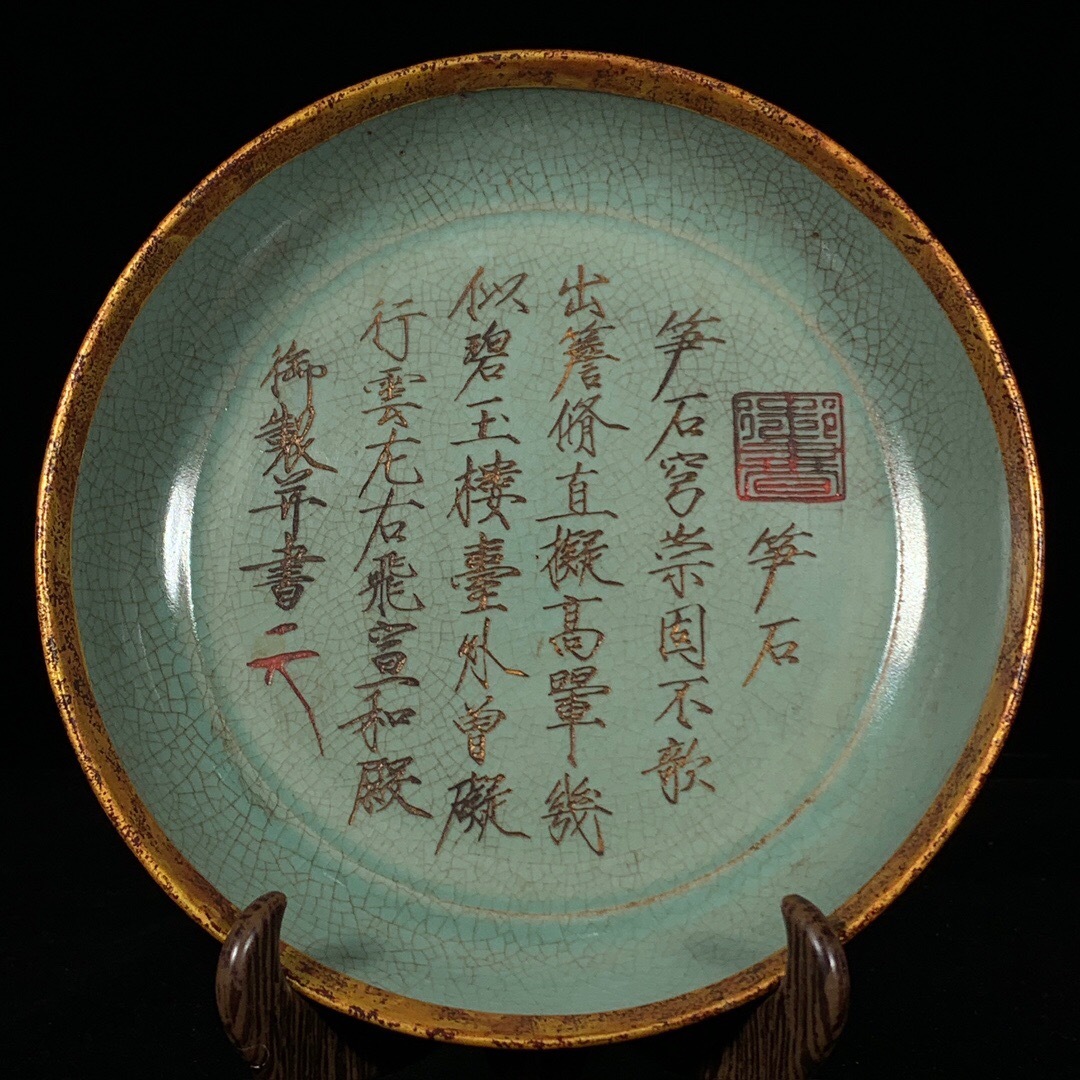 笋石
笋石穹崇固不欹
出簷脩直擬高翬幾
似碧玉樓臺外曾礙
行雲左右飛宣和殿
御製并書